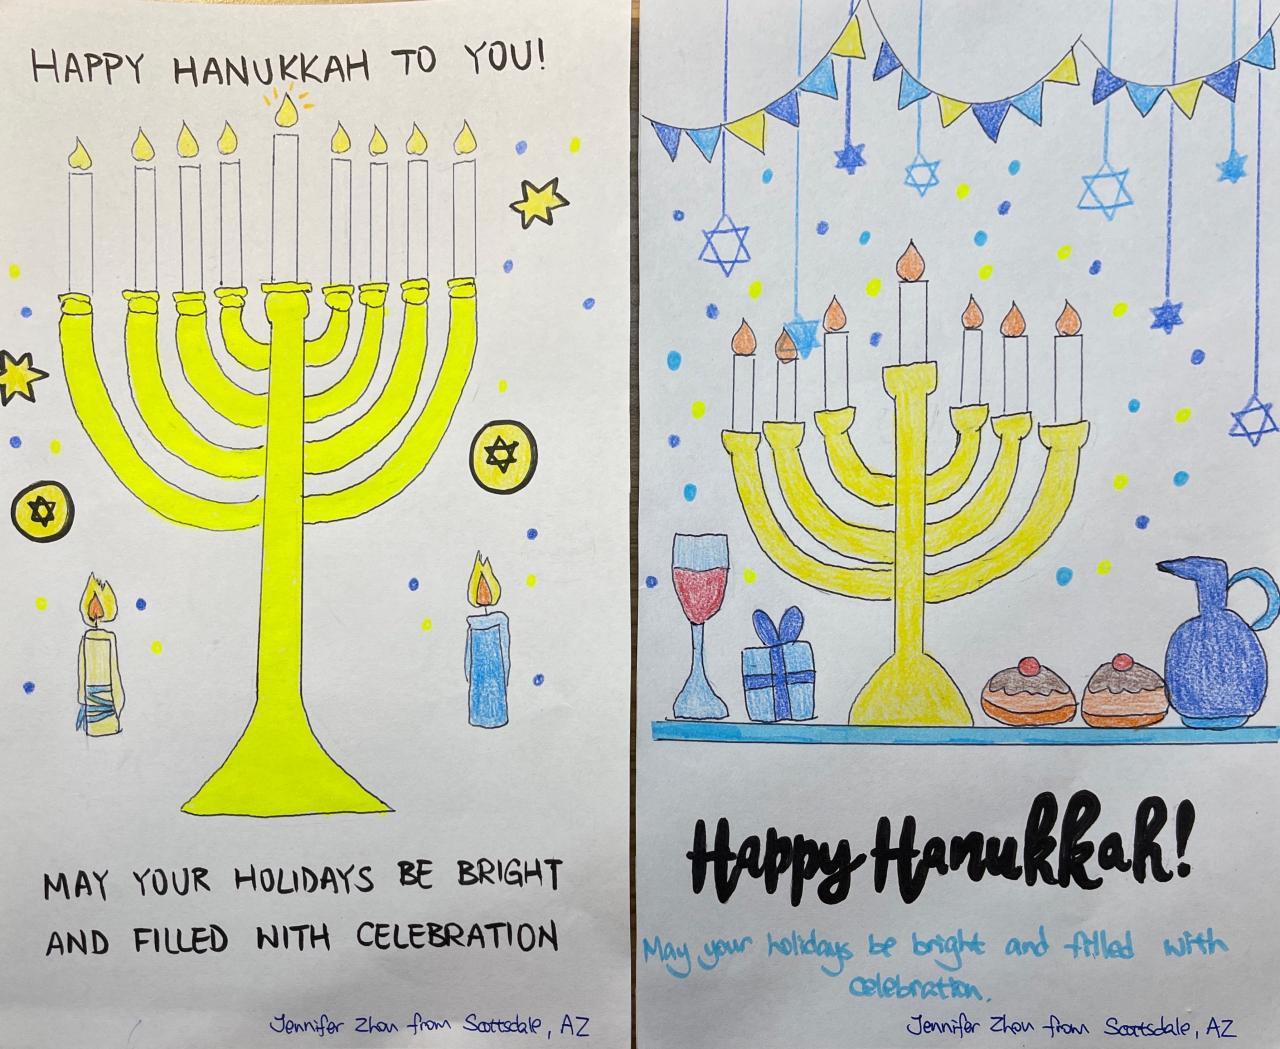 HAPPY HANUKKAH TO YOU!
MAY YOUR HOLIDAYS BE BRIGHT
AND FILLED WITH CELEBRATION
Jennifer Zhou from Scottsdale, AZ
Happy Hanukkah!
May your holidays be bright and filled with
celebration.
Jennifer Zhou from Scottsdale, AZ